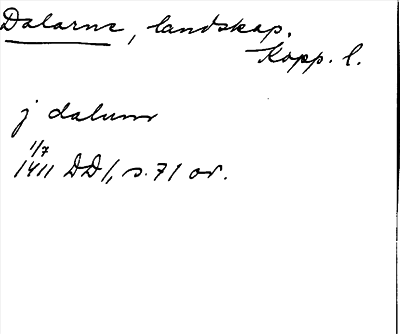 Dalarne, landskap.
Kopp. l.
j dalum
1/7
1411 DD 1, s. 71 or.